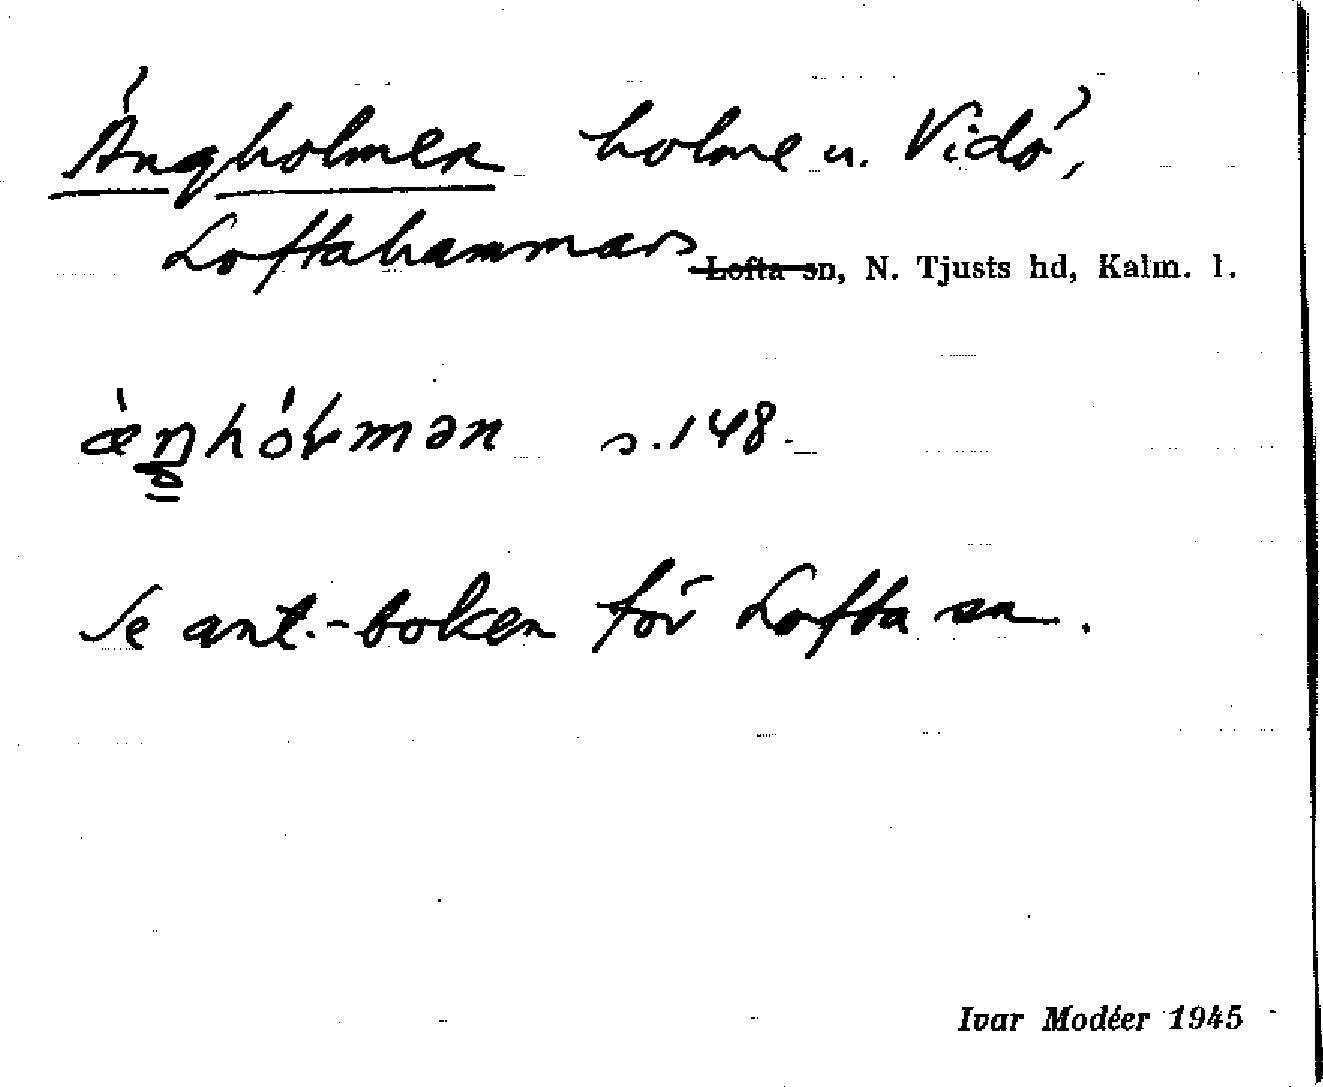 Ängholmen holme u. Vidö,
Loftahammars Lofta sn, N. Tjusts hd, Kalm. l.
s. 148.
Se ant.-boken för Lofta sn.
Ivar Modéer 1945